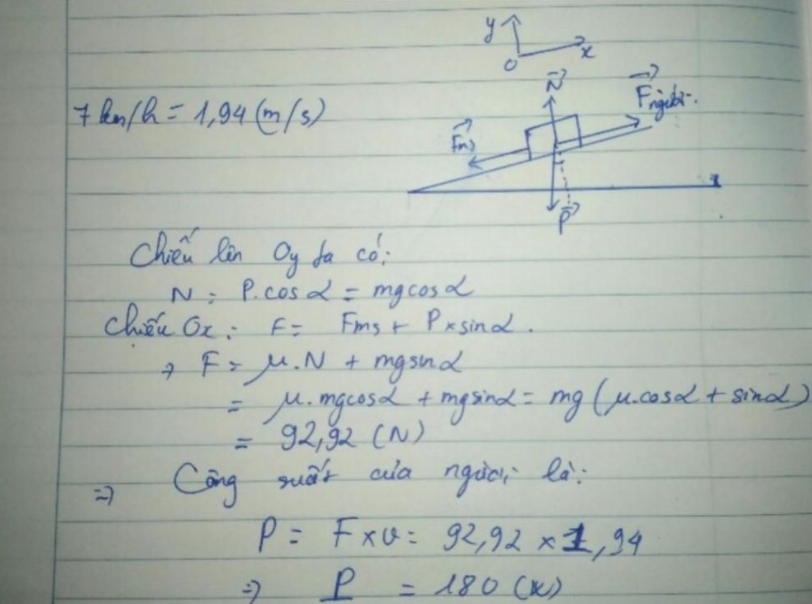 y
O x
7 km/h = 1,94 (m/s)
N
F người
Fms
P
Chiếu lên Oy ta có:
N = P.cosα = mgcosα
Chiếu Ox: F = Fms + P×sinα.
→ F = μ.N + mgsinα
= μ.mgcosα + mgsinα = mg(μ.cosα + sinα)
= 92,92 (N)
⇒ Công suất của người là:
P = F×v = 92,92 × 1,94
⇒ P = 180 (W)